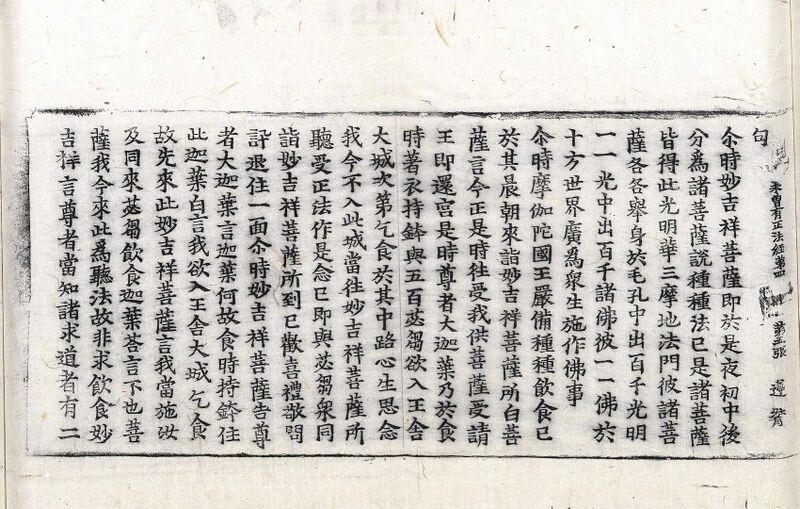 未曾有正法經第四 第五張 邇
句
尒時妙吉祥菩薩即於是夜初中後
分爲諸菩薩說種種法已是諸菩薩
皆得此光明華三摩地法門彼諸菩
薩各各舉身於毛孔中出百千光明
一一光中出百千諸佛彼一一佛於
十方世界廣爲衆生施作佛事
尒時摩伽陀國王嚴備種種飲食已
於其晨朝來詣妙吉祥菩薩所白菩
薩言今正是時往受我供菩薩受請
王即還宮是時尊者大迦葉乃於食
時著衣持鉢與五百苾芻欲入王舍
大城次第乞食於其中路心生思念
我今不入此城當往妙吉祥菩薩所
聽受正法作是念已即與苾芻衆同
詣妙吉祥菩薩所到已歡喜禮敬問
訊退住一面尒時妙吉祥菩薩告尊
者大迦葉言迦葉何故食時持鉢住
此迦葉白言我欲入王舍大城乞食
故先來此妙吉祥菩薩言我當施汝
及同來苾芻飲食迦葉荅言不也菩
薩我今來此爲聽法故非求飲食妙
吉祥言尊者當知諸求道者有二